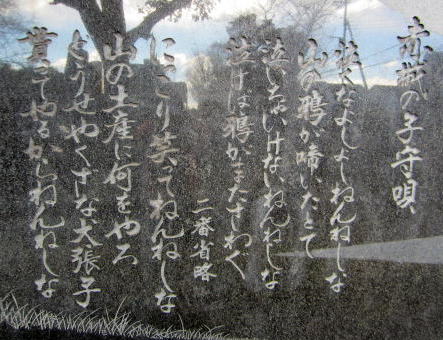 赤城の子守唄
泣くなよしよしねんねしな
山の鴉が啼いたとて
泣いちゃいけないねんねしな
泣けば鴉がまたさわぐ
二番省略
にっこり笑ってねんねしな
山の土産に何をやろ
どうせやくざな犬張子
貰ってやるからねんねしな